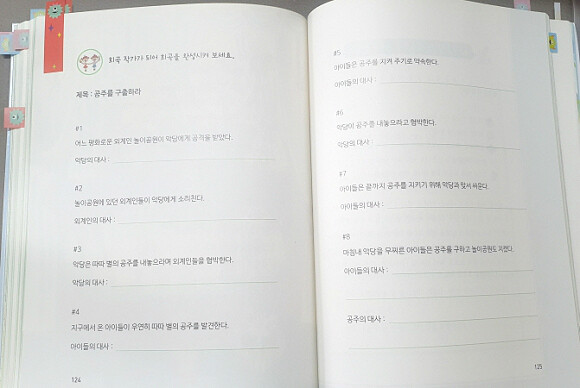 희곡 작가가 되어 희곡을 완성시켜 보세요.
제목 : 공주를 구출하라
#1
어느 평화로운 외계인 놀이공원이 악당에게 공격을 받았다.
악당의 대사 :
#2
놀이공원에 있던 외계인들이 악당에게 소리친다.
외계인의 대사 :
#3
악당은 따따 별의 공주를 내놓으라며 외계인들을 협박한다.
악당의 대사 :
#4
지구에서 온 아이들이 우연히 따따 별의 공주를 발견한다.
아이들의 대사 :
124
#5
아이들은 공주를 지켜 주기로 약속한다.
아이들의 대사 :
#6
악당이 공주를 내놓으라고 협박한다.
악당의 대사 :
#7
아이들은 끝까지 공주를 지키기 위해 악당과 맞서 싸운다.
아이들의 대사 :
#8
마침내 악당을 무찌른 아이들은 공주를 구하고 놀이공원도 지켰다.
아이들의 대사 :
공주의 대사 :
125